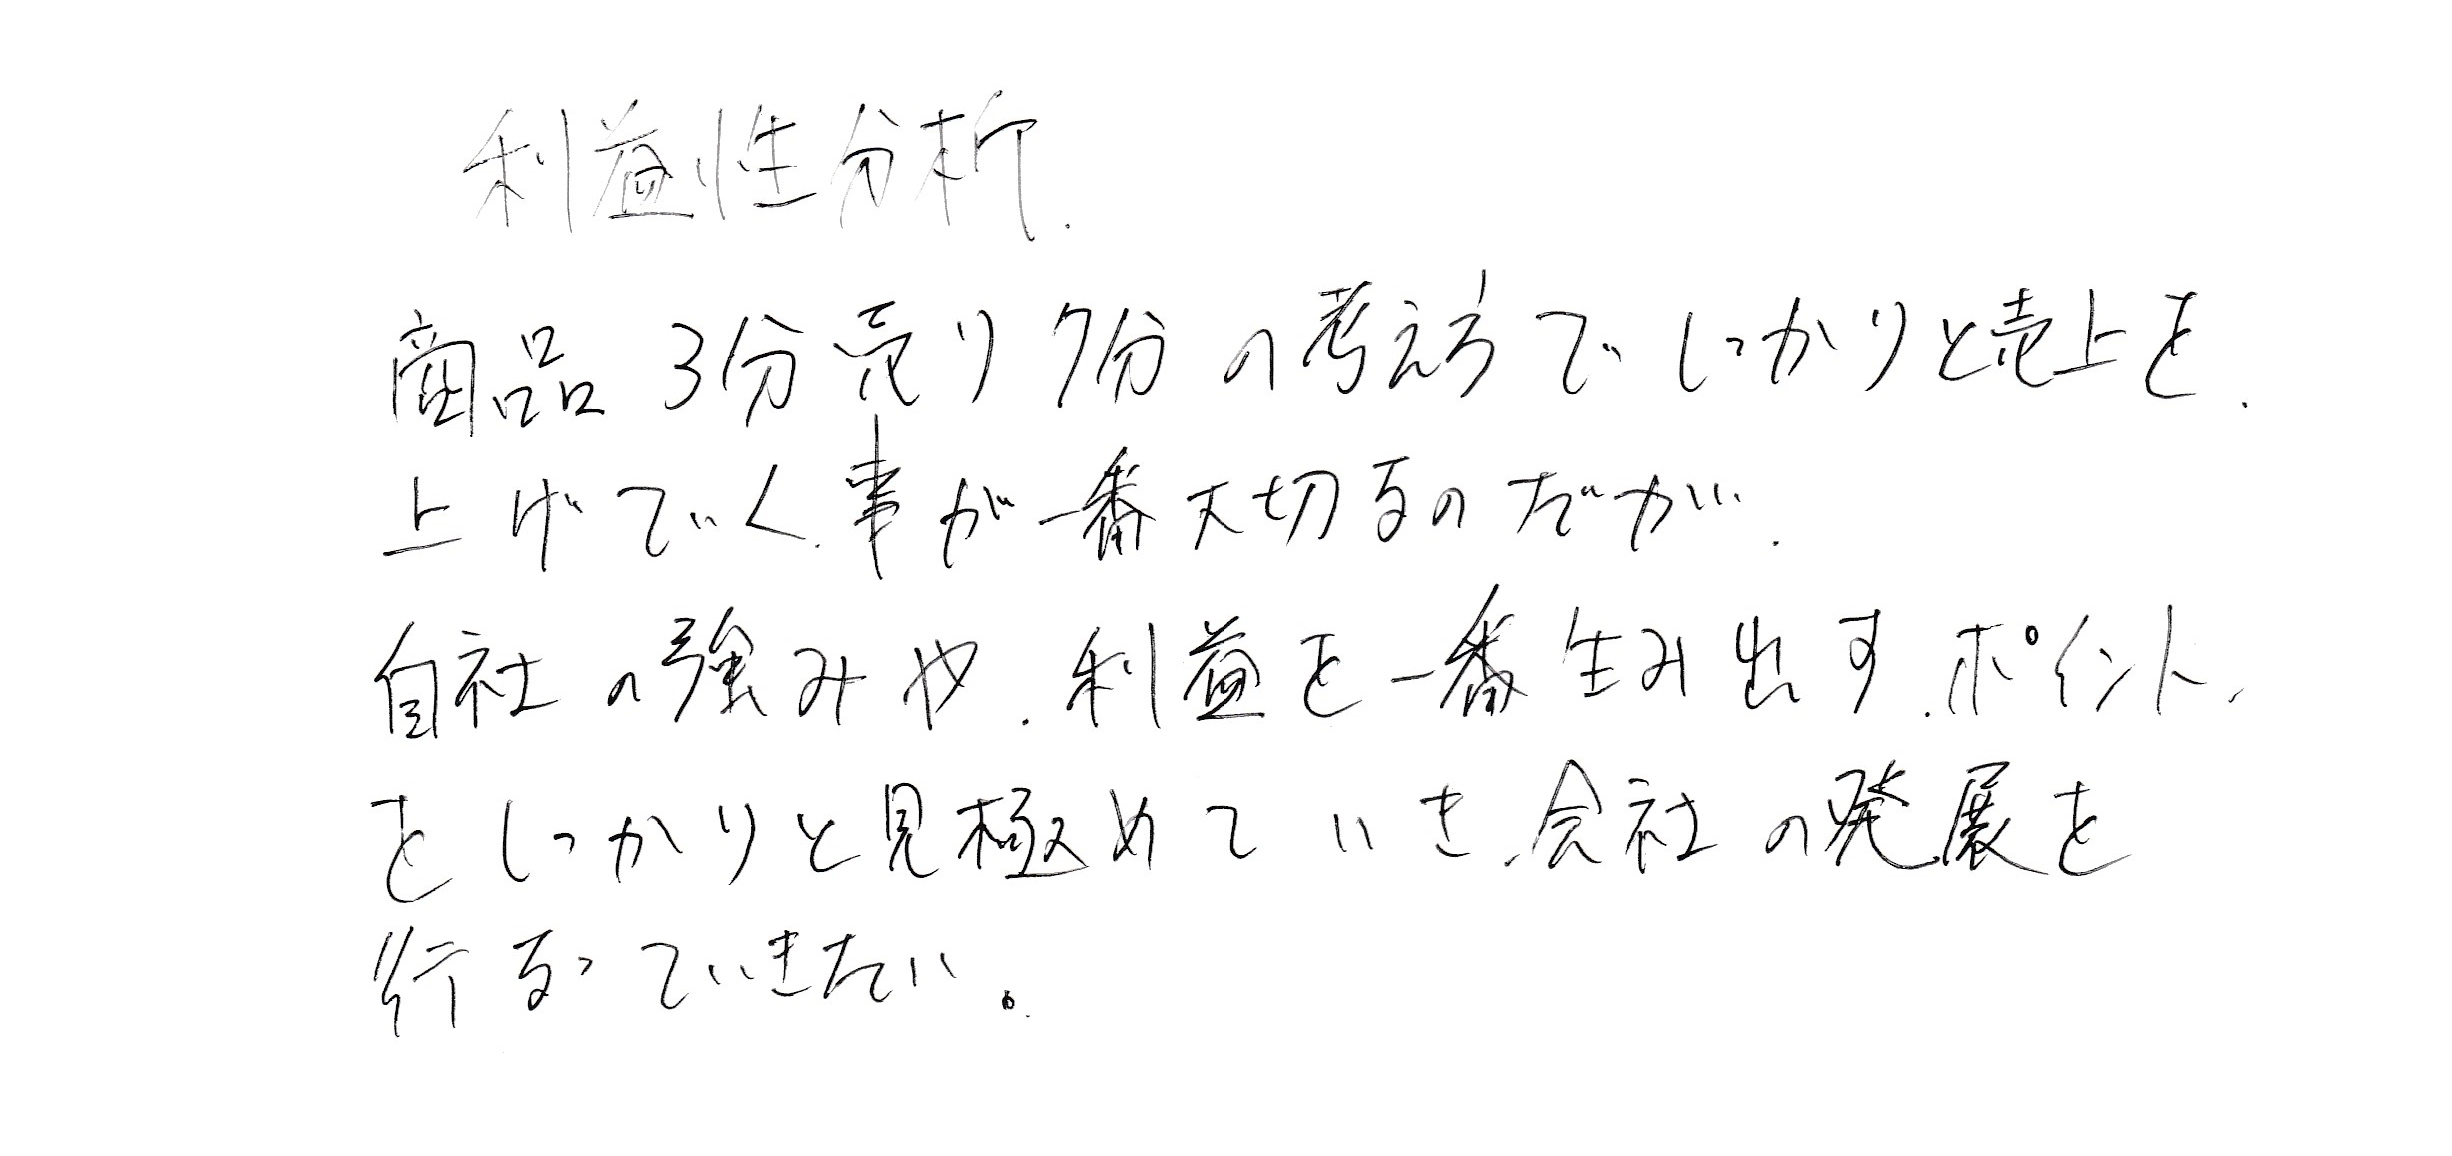 利益性分析.
商品3分売り7分の考え方でしっかりと売上を.
上げていく.事が一番大切なのだが.
自社の強みや.利益を一番生み出す.ポイント.
をしっかりと見極めていき.会社の発展を
行なっていきたい。